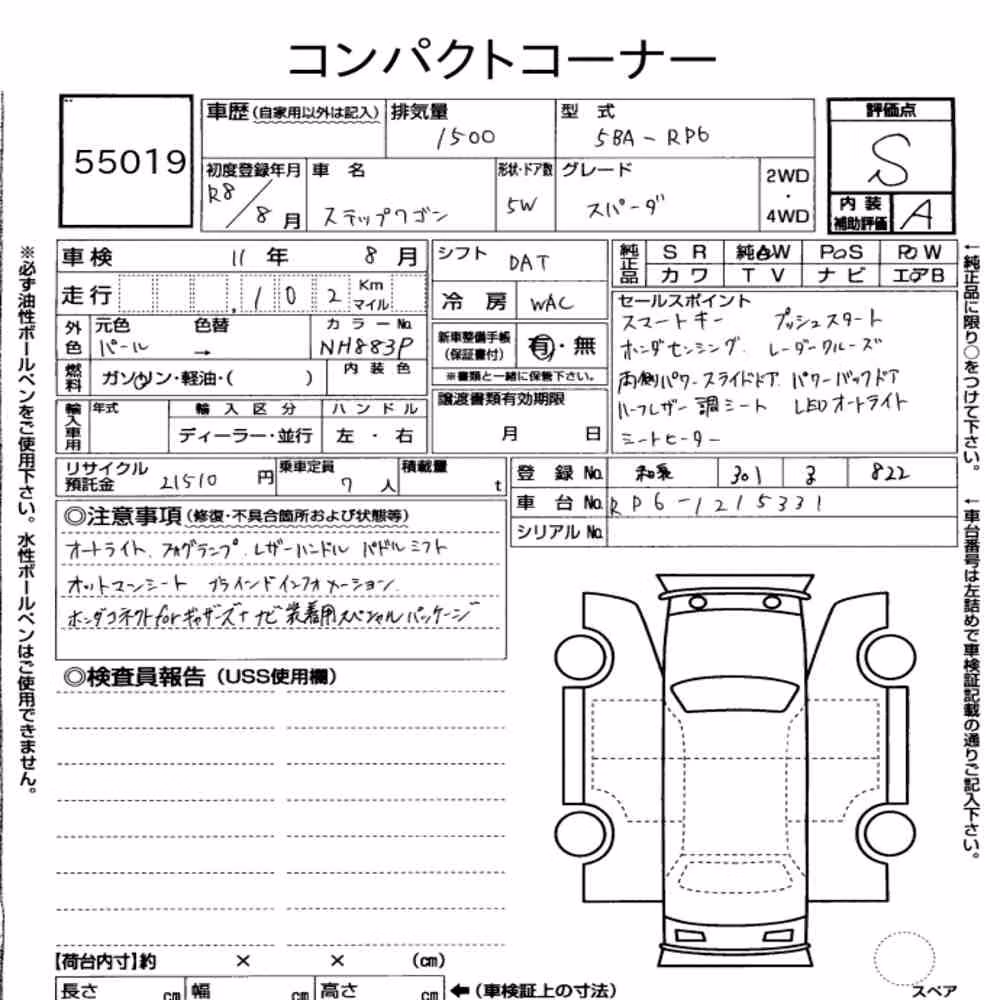 コンパクトコーナー
55019
車歴(自家用以外は記入)
排気量
1500
型 式
5BA-RP6
評価点
S
初度登録年月
R8/8月
車 名
ステップワゴン
形状・ドア数
5W
グレード
スパーダ
2WD
・
4WD
内 装
補助評価
A
車検 11年 8月
シフト DAT
純正品
S R 純AW PoS PoW
カワ TV ナビ エアB
走行 , 1 0 2 Km
マイル
冷 房 WAC
セールスポイント
スマートキー プッシュスタート
ホンダセンシング. レーダークルーズ
両側パワースライドドア パワーバックドア
ハーフレザー調シート LEDオートライト
シートヒーター
外色
元色 色替 カラーNo.
パール → NH883P
新車整備手帳
(保証書付)
有・無
※書類と一緒に保管下さい。
燃料
ガソリン・軽油・( )
内 装 色
譲渡書類有効期限
月 日
輸入車用
年式
輸 入 区 分
ハ ン ド ル
ディーラー・並行
左 ・ 右
リサイクル
預託金
21510 円
乗車定員
7 人
積載量
t
登 録 No. 和泉 301 る 822
車 台 No. RP6-1215331
シリアル No.
◎注意事項(修復・不具合箇所および状態等)
オートライト. フォグランプ. レザーハンドル パドルシフト
オットマンシート ブラインドインフォメーション.
ホンダコネクトforギャザーズ+ナビ装着用スペシャルパッケージ
◎検査員報告(USS使用欄)
【荷台内寸】約 × × (cm)
長さ cm 幅 cm 高さ cm ←(車検証上の寸法)
スペア
※必ず油性ボールペンをご使用下さい。水性ボールペンはご使用できません。
←純正品に限り○をつけて下さい。
←車台番号は左詰めで車検証記載の通りご記入下さい。